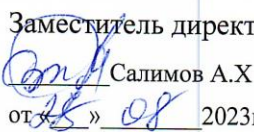 Заместитель директ
Салимов А.Х
от «25» 08 2023г